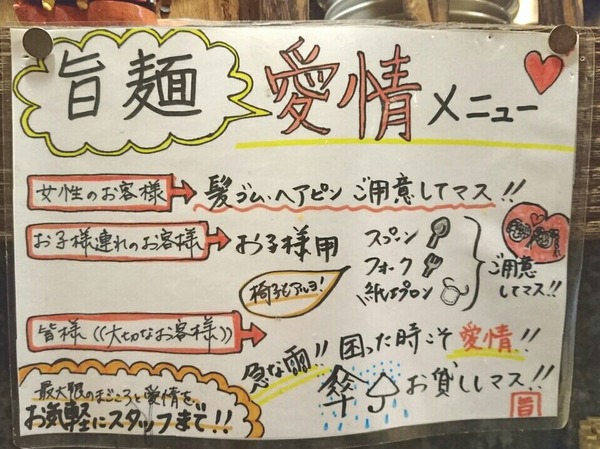 旨麺 愛情メニュー
女性のお客様 髪ゴム、ヘアピン ご用意してマス!!
お子様連れのお客様 お子様用
スプーン
フォーク
紙エプロン
ご用意
してマス!!
椅子もアルヨ!
皆様((大切なお客様))
急な雨!! 困った時こそ 愛情!!
傘 お貸ししマス!!
最大限のまごころと愛情を、
お気軽にスタッフまで!!
旨